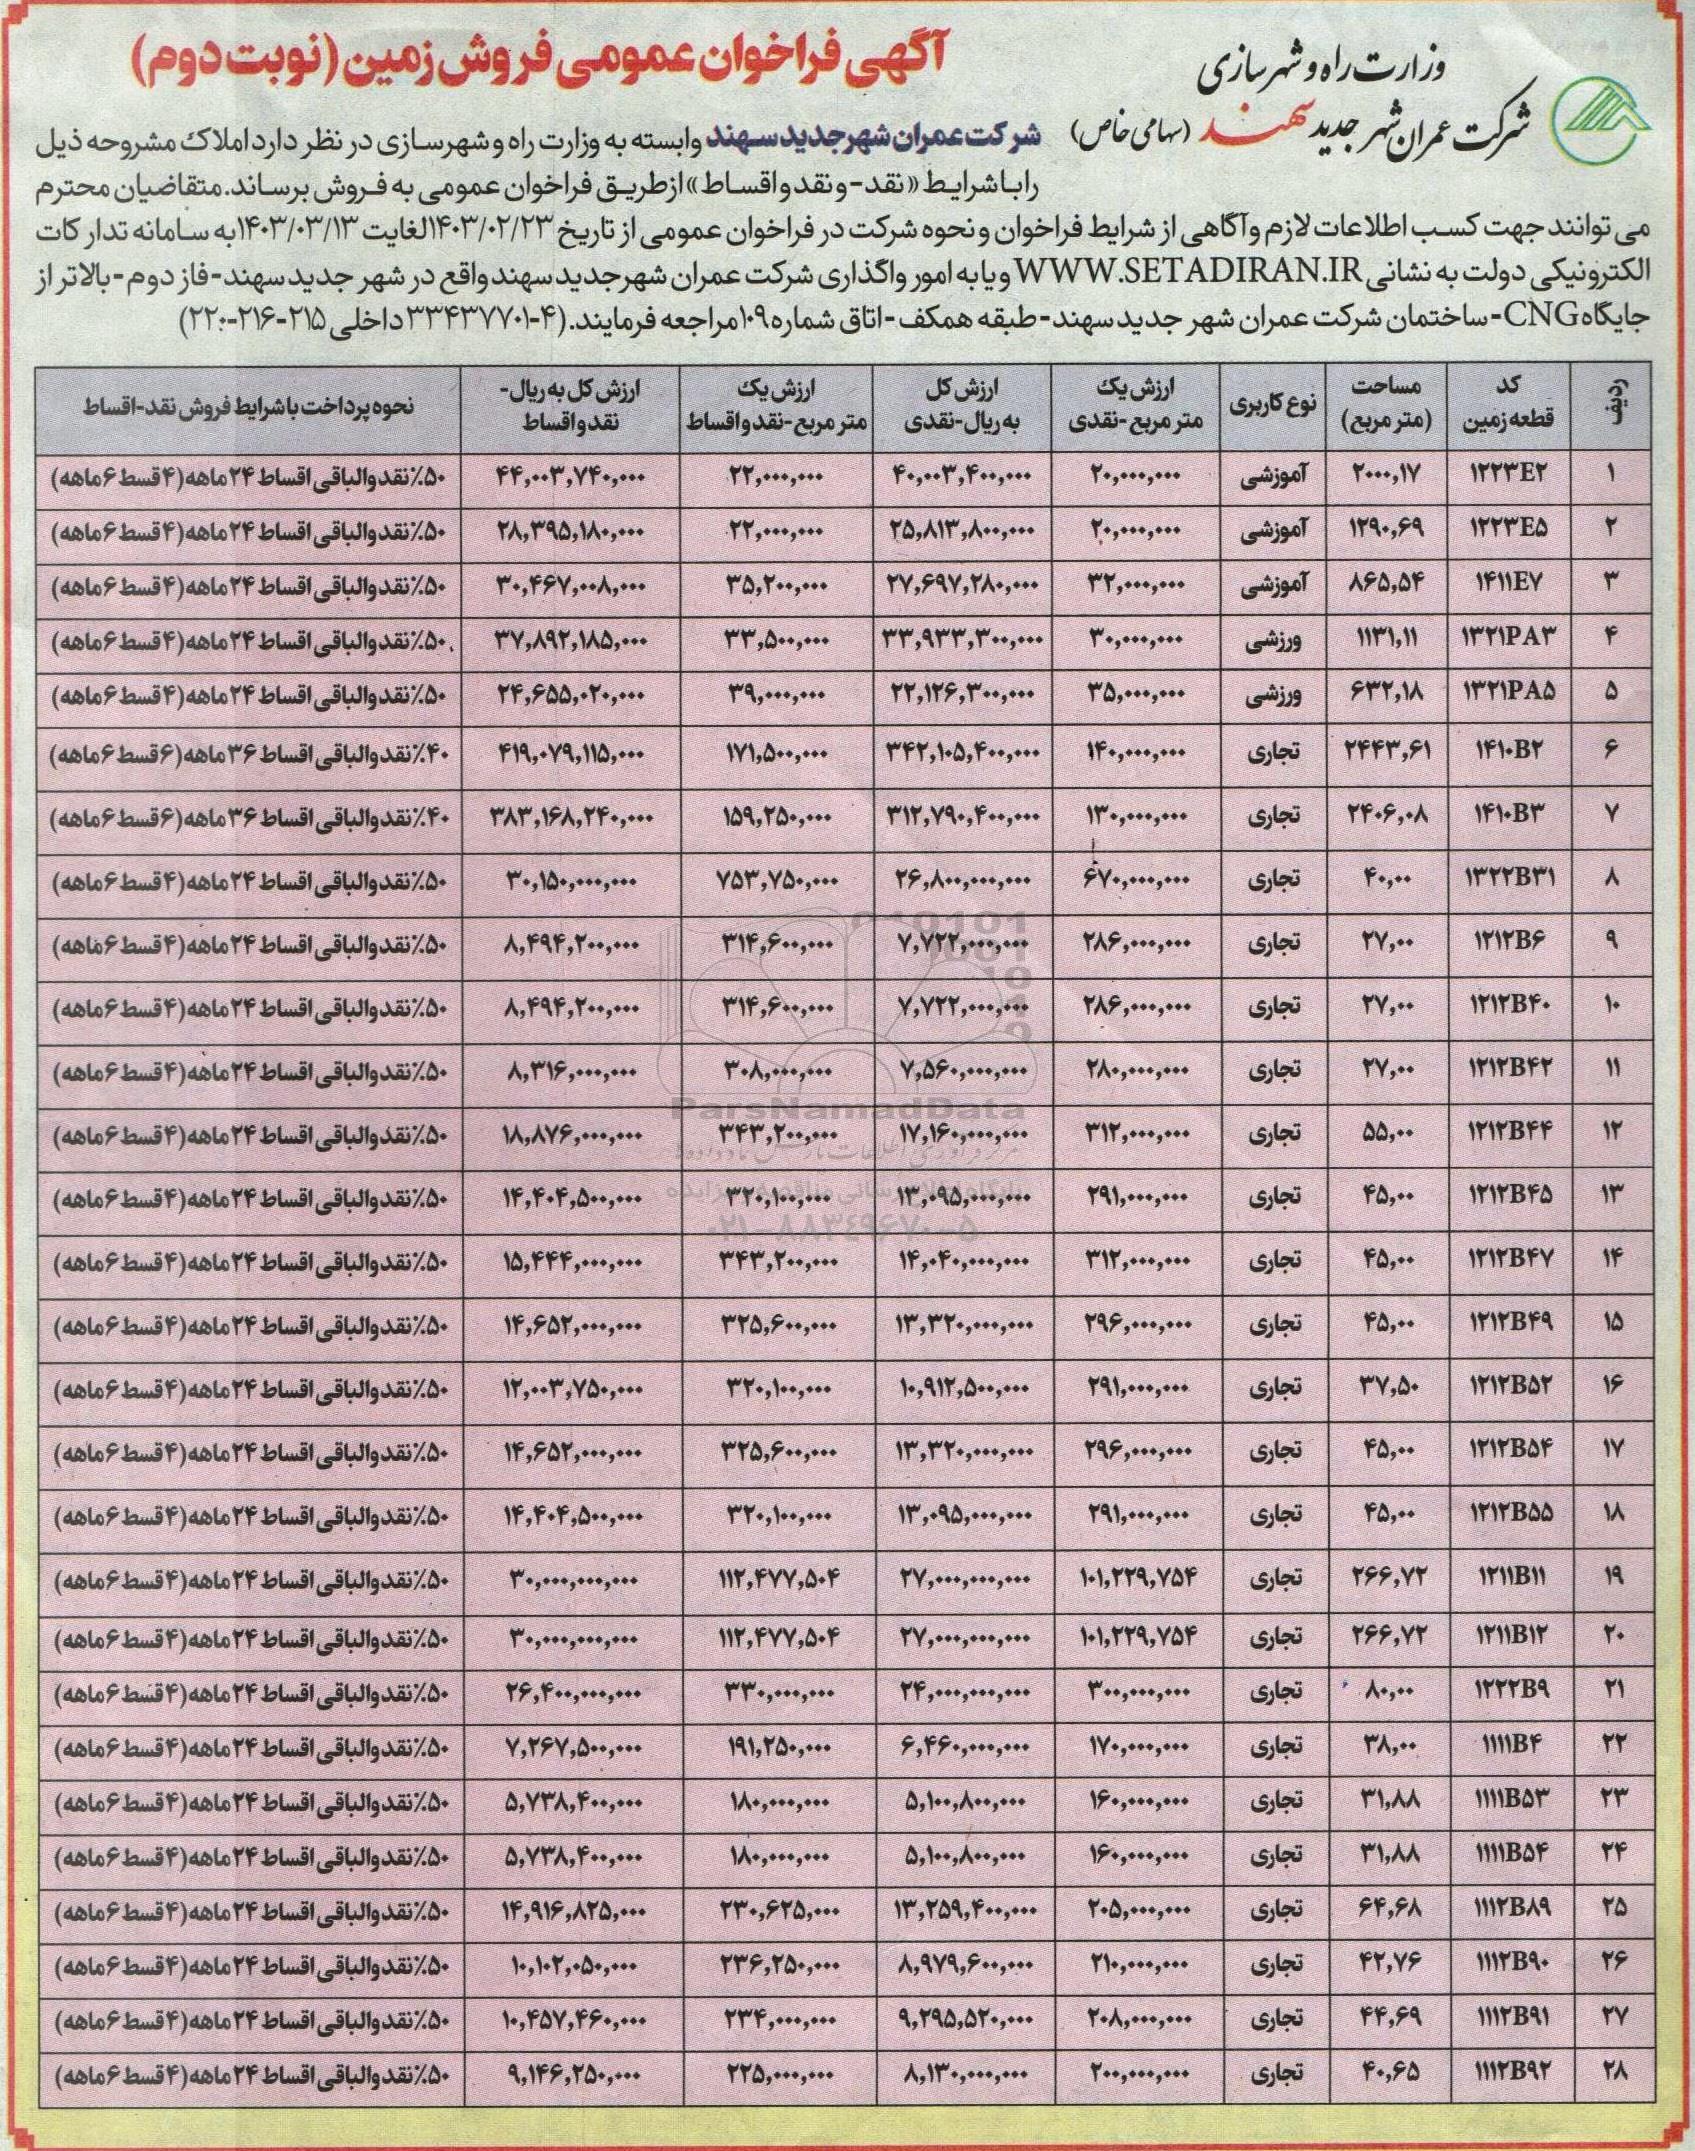 وزارت راه و شهرسازی
شرکت عمران شهر جدید سهند (سهامی خاص)
آگهی فراخوان عمومی فروش زمین (نوبت دوم)
شرکت عمران شهر جدید سهند وابسته به وزارت راه و شهرسازی در نظر دارد املاک مشروحه ذیل
را با شرایط «نقد - و نقد و اقساط» از طریق فراخوان عمومی به فروش برساند. متقاضیان محترم
می توانند جهت کسب اطلاعات لازم و آگاهی از شرایط فراخوان و نحوه شرکت در فراخوان عمومی از تاریخ ۱۴۰۳/۰۲/۲۳ لغایت ۱۴۰۳/۰۳/۱۳ به سامانه تدارکات
الکترونیکی دولت به نشانی WWW.SETADIRAN.IR و یا به امور واگذاری شرکت عمران شهر جدید سهند واقع در شهر جدید سهند - فاز دوم - بالاتر از
جایگاه CNG - ساختمان شرکت عمران شهر جدید سهند - طبقه همکف - اتاق شماره ۱۰۹ مراجعه فرمایند. (۴-۳۳۴۳۷۷۰۱ داخلی ۲۱۵-۲۱۶-۲۲۰)
ردیف | کد قطعه زمین | مساحت (متر مربع) | نوع کاربری | ارزش یک متر مربع-نقدی | ارزش کل به ریال-نقدی | ارزش یک متر مربع-نقد و اقساط | ارزش کل به ریال-نقد و اقساط | نحوه پرداخت با شرایط فروش نقد-اقساط
۱ | ۱۲۲۳E۲ | ۲۰۰۰,۱۷ | آموزشی | ۲۰,۰۰۰,۰۰۰ | ۴۰,۰۰۳,۴۰۰,۰۰۰ | ۲۲,۰۰۰,۰۰۰ | ۴۴,۰۰۳,۷۴۰,۰۰۰ | ۵۰٪ نقد والباقی اقساط ۲۴ ماهه (۴ قسط ۶ ماهه)
۲ | ۱۲۲۳E۵ | ۱۲۹۰,۶۹ | آموزشی | ۲۰,۰۰۰,۰۰۰ | ۲۵,۸۱۳,۸۰۰,۰۰۰ | ۲۲,۰۰۰,۰۰۰ | ۲۸,۳۹۵,۱۸۰,۰۰۰ | ۵۰٪ نقد والباقی اقساط ۲۴ ماهه (۴ قسط ۶ ماهه)
۳ | ۱۴۱۱E۷ | ۸۶۵,۵۴ | آموزشی | ۳۲,۰۰۰,۰۰۰ | ۲۷,۶۹۷,۲۸۰,۰۰۰ | ۳۵,۲۰۰,۰۰۰ | ۳۰,۴۶۷,۰۰۸,۰۰۰ | ۵۰٪ نقد والباقی اقساط ۲۴ ماهه (۴ قسط ۶ ماهه)
۴ | ۱۳۲۱PA۳ | ۱۱۳۱,۱۱ | ورزشی | ۳۰,۰۰۰,۰۰۰ | ۳۳,۹۳۳,۳۰۰,۰۰۰ | ۳۳,۵۰۰,۰۰۰ | ۳۷,۸۹۲,۱۸۵,۰۰۰ | ۵۰٪ نقد والباقی اقساط ۲۴ ماهه (۴ قسط ۶ ماهه)
۵ | ۱۳۲۱PA۵ | ۶۳۲,۱۸ | ورزشی | ۳۵,۰۰۰,۰۰۰ | ۲۲,۱۲۶,۳۰۰,۰۰۰ | ۳۹,۰۰۰,۰۰۰ | ۲۴,۶۵۵,۰۲۰,۰۰۰ | ۵۰٪ نقد والباقی اقساط ۲۴ ماهه (۴ قسط ۶ ماهه)
۶ | ۱۴۱۰B۲ | ۲۴۴۳,۶۱ | تجاری | ۱۴۰,۰۰۰,۰۰۰ | ۳۴۲,۱۰۵,۴۰۰,۰۰۰ | ۱۷۱,۵۰۰,۰۰۰ | ۴۱۹,۰۷۹,۱۱۵,۰۰۰ | ۴۰٪ نقد والباقی اقساط ۳۶ ماهه (۶ قسط ۶ ماهه)
۷ | ۱۴۱۰B۳ | ۲۴۰۶,۰۸ | تجاری | ۱۳۰,۰۰۰,۰۰۰ | ۳۱۲,۷۹۰,۴۰۰,۰۰۰ | ۱۵۹,۲۵۰,۰۰۰ | ۳۸۳,۱۶۸,۲۴۰,۰۰۰ | ۴۰٪ نقد والباقی اقساط ۳۶ ماهه (۶ قسط ۶ ماهه)
۸ | ۱۳۲۲B۳۱ | ۴۰,۰۰ | تجاری | ۶۷۰,۰۰۰,۰۰۰ | ۲۶,۸۰۰,۰۰۰,۰۰۰ | ۷۵۳,۷۵۰,۰۰۰ | ۳۰,۱۵۰,۰۰۰,۰۰۰ | ۵۰٪ نقد والباقی اقساط ۲۴ ماهه (۴ قسط ۶ ماهه)
۹ | ۱۲۱۲B۶ | ۲۷,۰۰ | تجاری | ۲۸۶,۰۰۰,۰۰۰ | ۷,۷۲۲,۰۰۰,۰۰۰ | ۳۱۴,۶۰۰,۰۰۰ | ۸,۴۹۴,۲۰۰,۰۰۰ | ۵۰٪ نقد والباقی اقساط ۲۴ ماهه (۴ قسط ۶ ماهه)
۱۰ | ۱۲۱۲B۴۰ | ۲۷,۰۰ | تجاری | ۲۸۶,۰۰۰,۰۰۰ | ۷,۷۲۲,۰۰۰,۰۰۰ | ۳۱۴,۶۰۰,۰۰۰ | ۸,۴۹۴,۲۰۰,۰۰۰ | ۵۰٪ نقد والباقی اقساط ۲۴ ماهه (۴ قسط ۶ ماهه)
۱۱ | ۱۲۱۲B۴۲ | ۲۷,۰۰ | تجاری | ۲۸۰,۰۰۰,۰۰۰ | ۷,۵۶۰,۰۰۰,۰۰۰ | ۳۰۸,۰۰۰,۰۰۰ | ۸,۳۱۶,۰۰۰,۰۰۰ | ۵۰٪ نقد والباقی اقساط ۲۴ ماهه (۴ قسط ۶ ماهه)
۱۲ | ۱۲۱۲B۴۴ | ۵۵,۰۰ | تجاری | ۳۱۲,۰۰۰,۰۰۰ | ۱۷,۱۶۰,۰۰۰,۰۰۰ | ۳۴۳,۲۰۰,۰۰۰ | ۱۸,۸۷۶,۰۰۰,۰۰۰ | ۵۰٪ نقد والباقی اقساط ۲۴ ماهه (۴ قسط ۶ ماهه)
۱۳ | ۱۲۱۲B۴۵ | ۴۵,۰۰ | تجاری | ۲۹۱,۰۰۰,۰۰۰ | ۱۳,۰۹۵,۰۰۰,۰۰۰ | ۳۲۰,۱۰۰,۰۰۰ | ۱۴,۴۰۴,۵۰۰,۰۰۰ | ۵۰٪ نقد والباقی اقساط ۲۴ ماهه (۴ قسط ۶ ماهه)
۱۴ | ۱۲۱۲B۴۷ | ۴۵,۰۰ | تجاری | ۳۱۲,۰۰۰,۰۰۰ | ۱۴,۰۴۰,۰۰۰,۰۰۰ | ۳۴۳,۲۰۰,۰۰۰ | ۱۵,۴۴۴,۰۰۰,۰۰۰ | ۵۰٪ نقد والباقی اقساط ۲۴ ماهه (۴ قسط ۶ ماهه)
۱۵ | ۱۲۱۲B۴۹ | ۴۵,۰۰ | تجاری | ۲۹۶,۰۰۰,۰۰۰ | ۱۳,۳۲۰,۰۰۰,۰۰۰ | ۳۲۵,۶۰۰,۰۰۰ | ۱۴,۶۵۲,۰۰۰,۰۰۰ | ۵۰٪ نقد والباقی اقساط ۲۴ ماهه (۴ قسط ۶ ماهه)
۱۶ | ۱۲۱۲B۵۲ | ۳۷,۵۰ | تجاری | ۲۹۱,۰۰۰,۰۰۰ | ۱۰,۹۱۲,۵۰۰,۰۰۰ | ۳۲۰,۱۰۰,۰۰۰ | ۱۲,۰۰۳,۷۵۰,۰۰۰ | ۵۰٪ نقد والباقی اقساط ۲۴ ماهه (۴ قسط ۶ ماهه)
۱۷ | ۱۲۱۲B۵۴ | ۴۵,۰۰ | تجاری | ۲۹۶,۰۰۰,۰۰۰ | ۱۳,۳۲۰,۰۰۰,۰۰۰ | ۳۲۵,۶۰۰,۰۰۰ | ۱۴,۶۵۲,۰۰۰,۰۰۰ | ۵۰٪ نقد والباقی اقساط ۲۴ ماهه (۴ قسط ۶ ماهه)
۱۸ | ۱۲۱۲B۵۵ | ۴۵,۰۰ | تجاری | ۲۹۱,۰۰۰,۰۰۰ | ۱۳,۰۹۵,۰۰۰,۰۰۰ | ۳۲۰,۱۰۰,۰۰۰ | ۱۴,۴۰۴,۵۰۰,۰۰۰ | ۵۰٪ نقد والباقی اقساط ۲۴ ماهه (۴ قسط ۶ ماهه)
۱۹ | ۱۲۱۱B۱۱ | ۲۶۶,۷۲ | تجاری | ۱۰۱,۲۲۹,۷۵۴ | ۲۷,۰۰۰,۰۰۰,۰۰۰ | ۱۱۲,۴۷۷,۵۰۴ | ۳۰,۰۰۰,۰۰۰,۰۰۰ | ۵۰٪ نقد والباقی اقساط ۲۴ ماهه (۴ قسط ۶ ماهه)
۲۰ | ۱۲۱۱B۱۲ | ۲۶۶,۷۲ | تجاری | ۱۰۱,۲۲۹,۷۵۴ | ۲۷,۰۰۰,۰۰۰,۰۰۰ | ۱۱۲,۴۷۷,۵۰۴ | ۳۰,۰۰۰,۰۰۰,۰۰۰ | ۵۰٪ نقد والباقی اقساط ۲۴ ماهه (۴ قسط ۶ ماهه)
۲۱ | ۱۲۲۲B۹ | ۸۰,۰۰ | تجاری | ۳۰۰,۰۰۰,۰۰۰ | ۲۴,۰۰۰,۰۰۰,۰۰۰ | ۳۳۰,۰۰۰,۰۰۰ | ۲۶,۴۰۰,۰۰۰,۰۰۰ | ۵۰٪ نقد والباقی اقساط ۲۴ ماهه (۴ قسط ۶ ماهه)
۲۲ | ۱۱۱۱B۴ | ۳۸,۰۰ | تجاری | ۱۷۰,۰۰۰,۰۰۰ | ۶,۴۶۰,۰۰۰,۰۰۰ | ۱۹۱,۲۵۰,۰۰۰ | ۷,۲۶۷,۵۰۰,۰۰۰ | ۵۰٪ نقد والباقی اقساط ۲۴ ماهه (۴ قسط ۶ ماهه)
۲۳ | ۱۱۱۱B۵۳ | ۳۱,۸۸ | تجاری | ۱۶۰,۰۰۰,۰۰۰ | ۵,۱۰۰,۸۰۰,۰۰۰ | ۱۸۰,۰۰۰,۰۰۰ | ۵,۷۳۸,۴۰۰,۰۰۰ | ۵۰٪ نقد والباقی اقساط ۲۴ ماهه (۴ قسط ۶ ماهه)
۲۴ | ۱۱۱۱B۵۴ | ۳۱,۸۸ | تجاری | ۱۶۰,۰۰۰,۰۰۰ | ۵,۱۰۰,۸۰۰,۰۰۰ | ۱۸۰,۰۰۰,۰۰۰ | ۵,۷۳۸,۴۰۰,۰۰۰ | ۵۰٪ نقد والباقی اقساط ۲۴ ماهه (۴ قسط ۶ ماهه)
۲۵ | ۱۱۱۲B۸۹ | ۶۴,۶۸ | تجاری | ۲۰۵,۰۰۰,۰۰۰ | ۱۳,۲۵۹,۴۰۰,۰۰۰ | ۲۳۰,۶۲۵,۰۰۰ | ۱۴,۹۱۶,۸۲۵,۰۰۰ | ۵۰٪ نقد والباقی اقساط ۲۴ ماهه (۴ قسط ۶ ماهه)
۲۶ | ۱۱۱۲B۹۰ | ۴۲,۷۶ | تجاری | ۲۱۰,۰۰۰,۰۰۰ | ۸,۹۷۹,۶۰۰,۰۰۰ | ۲۳۶,۲۵۰,۰۰۰ | ۱۰,۱۰۲,۰۵۰,۰۰۰ | ۵۰٪ نقد والباقی اقساط ۲۴ ماهه (۴ قسط ۶ ماهه)
۲۷ | ۱۱۱۲B۹۱ | ۴۴,۶۹ | تجاری | ۲۰۸,۰۰۰,۰۰۰ | ۹,۲۹۵,۵۲۰,۰۰۰ | ۲۳۴,۰۰۰,۰۰۰ | ۱۰,۴۵۷,۴۶۰,۰۰۰ | ۵۰٪ نقد والباقی اقساط ۲۴ ماهه (۴ قسط ۶ ماهه)
۲۸ | ۱۱۱۲B۹۲ | ۴۰,۶۵ | تجاری | ۲۰۰,۰۰۰,۰۰۰ | ۸,۱۳۰,۰۰۰,۰۰۰ | ۲۲۵,۰۰۰,۰۰۰ | ۹,۱۴۶,۲۵۰,۰۰۰ | ۵۰٪ نقد والباقی اقساط ۲۴ ماهه (۴ قسط ۶ ماهه)
ParsNamadData
۰۲۱-۸۸۳۴۹۶۷۰-۵